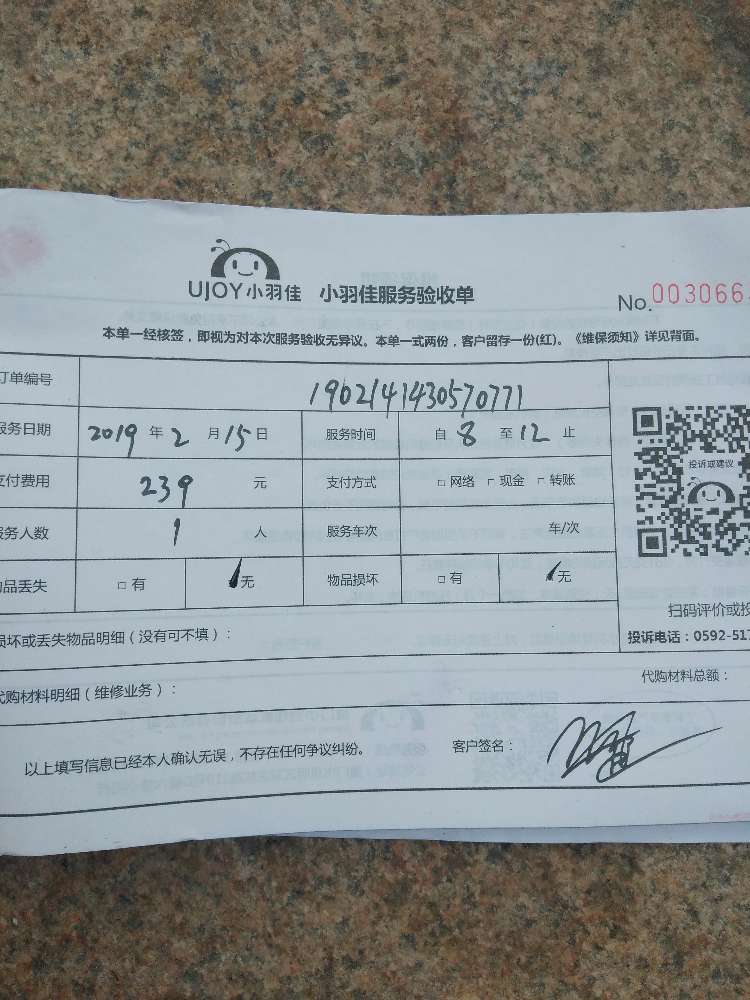 UJOY小羽佳 小羽佳服务验收单
No.003066
本单一经核签，即视为对本次服务验收无异议。本单一式两份，客户留存一份(红)。《维保须知》详见背面。
订单编号 1902141430570771
服务日期 2019年2月15日 服务时间 自8至12止
支付费用 239元 支付方式 □网络 □现金 □转账
服务人数 1人 服务车次 车/次
物品丢失 □有 无 物品损坏 □有 无
投诉或建议
扫码评价或投
投诉电话：0592-517
损坏或丢失物品明细（没有可不填）：
代购材料明细（维修业务）： 代购材料总额：
以上填写信息已经本人确认无误，不存在任何争议纠纷。 客户签名：